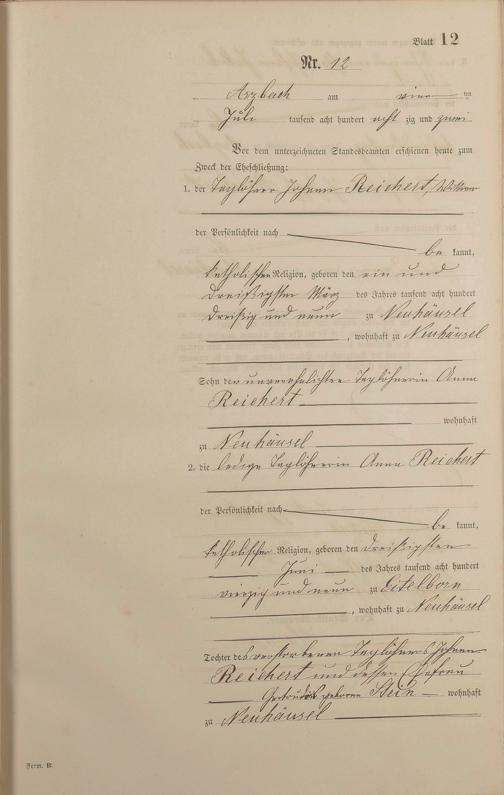 Blatt 12
Nr. 12
Arzbach am vier ten
Juli tausend acht hundert acht zig und zwei
Vor dem unterzeichneten Standesbeamten erschienen heute zum
Zweck der Eheschließung:
1. der Taglöhner Johann Reichert, Wittwer
der Persönlichkeit nach
be kannt,
katholischer Religion, geboren den ein und
dreißigsten März des Jahres tausend acht hundert
dreißig und neun zu Neuhäusel
, wohnhaft zu Neuhäusel
Sohn der unverehelichten Taglöhnerin Anna
Reichert
wohnhaft
zu Neuhäusel
2. die ledige Taglöhnerin Anna Reichert
der Persönlichkeit nach
be kannt,
katholischer Religion, geboren den dreißigsten
Juni des Jahres tausend acht hundert
vierzig und neun zu Eitelborn
, wohnhaft zu Neuhäusel
Tochter des verstorbenen Taglöhners Johann
Reichert und dessen Ehefrau
Gertrud geborene Stein wohnhaft
zu Neuhäusel
Form. B.